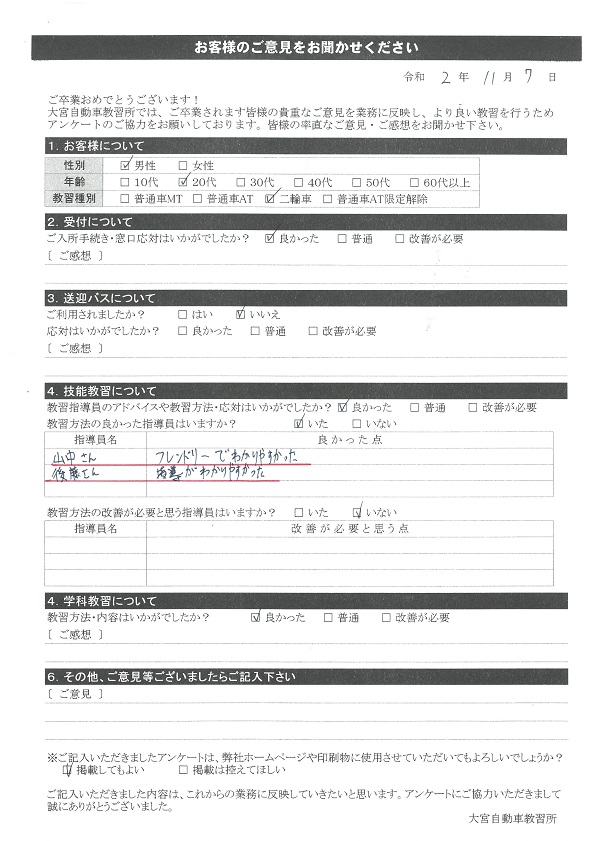 お客様のご意見をお聞かせください
令和 2 年 11 月 7 日
ご卒業おめでとうございます！
大宮自動車教習所では、ご卒業されます皆様の貴重なご意見を業務に反映し、より良い教習を行うため
アンケートのご協力をお願いしております。皆様の率直なご意見・ご感想をお聞かせ下さい。
1. お客様について
性別 ☑男性 □女性
年齢 □10代 ☑20代 □30代 □40代 □50代 □60代以上
教習種別 □普通車MT □普通車AT ☑二輪車 □普通車AT限定解除
2. 受付について
ご入所手続き・窓口応対はいかがでしたか？ ☑良かった □普通 □改善が必要
[ ご感想 ]
3. 送迎バスについて
ご利用されましたか？ □はい ☑いいえ
応対はいかがでしたか？ □良かった □普通 □改善が必要
[ ご感想 ]
4. 技能教習について
教習指導員のアドバイスや教習方法・応対はいかがでしたか？ ☑良かった □普通 □改善が必要
教習方法の良かった指導員はいますか？ ☑いた □いない
指導員名 良かった点
山中さん フレンドリーでわかりやすかった
後藤さん がわかりやすかった
教習方法の改善が必要と思う指導員はいますか？ □いた ☑いない
指導員名 改善が必要と思う点
4. 学科教習について
教習方法・内容はいかがでしたか？ ☑良かった □普通 □改善が必要
[ ご感想 ]
6. その他、ご意見等ございましたらご記入下さい
[ ご意見 ]
※ご記入いただきましたアンケートは、弊社ホームページや印刷物に使用させていただいてもよろしいでしょうか？
☑掲載してもよい □掲載は控えてほしい
ご記入いただきました内容は、これからの業務に反映していきたいと思います。アンケートにご協力いただきまして
誠にありがとうございました。
大宮自動車教習所